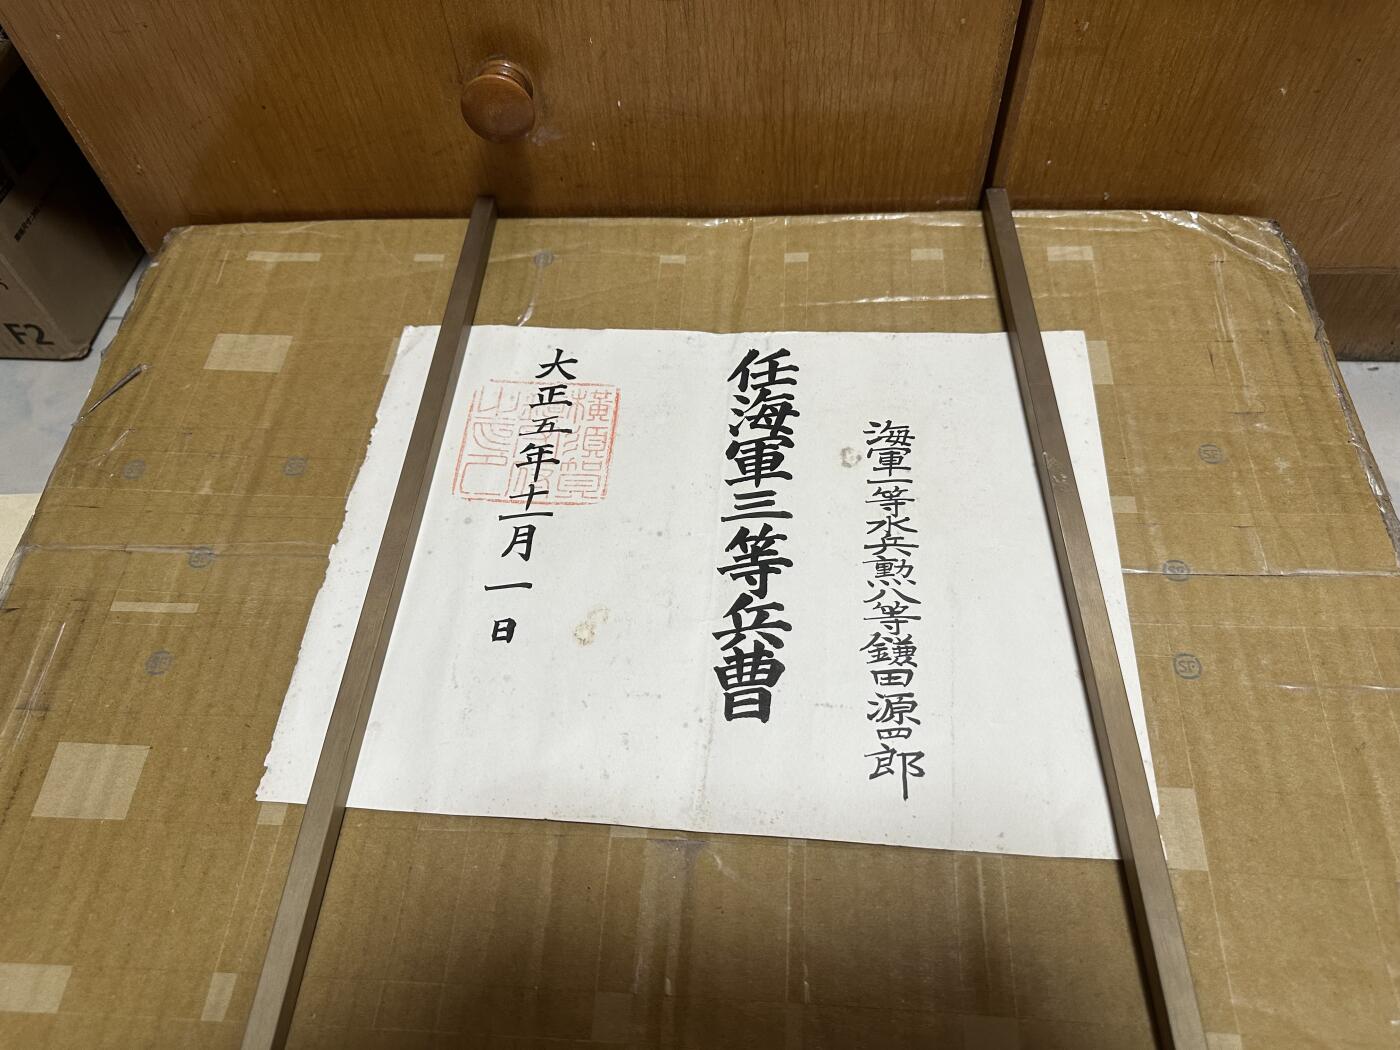 海軍一等水兵勲八等鎌田源四郎
任海軍三等兵曹
大正五年十一月一日
橫須賀
F2